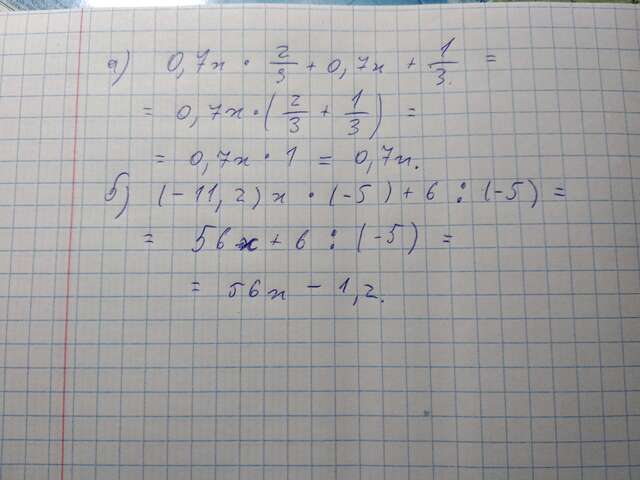 а) 0,7х · 2/3 + 0,7х + 1/3 =
= 0,7х · (2/3 + 1/3) =
= 0,7х · 1 = 0,7х.
б) (-11,2)х · (-5) + 6 : (-5) =
= 56х + 6 : (-5) =
= 56х - 1,2.